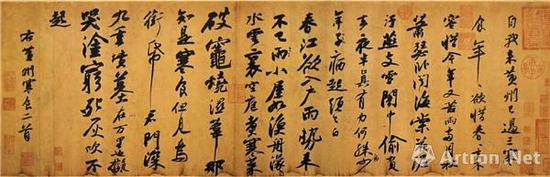 自我來黃州已過三寒
食年〻欲惜春〻去不
容惜今年又苦雨兩月秋
蕭瑟臥聞海棠花泥
汙燕支雪闇中偷負
去夜半真有力何殊少
年子病起頭已白
春江欲入戶雨勢來
不已雨小屋如漁舟濛〻
水雲裏空庖煮寒菜
破竈燒濕葦那
知是寒食但見烏
銜帋君門深
九重墳墓在萬里也擬
哭塗窮死灰吹不
起
右黃州寒食二首
Artron.Net